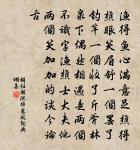 漁得魚心滿意足樵得
樵眼笑眉舒一個罷了
釣竿一個收了斤斧林
泉下偶然相遇是兩個
不識字漁樵士大夫他
兩個笑加加的談今論
古